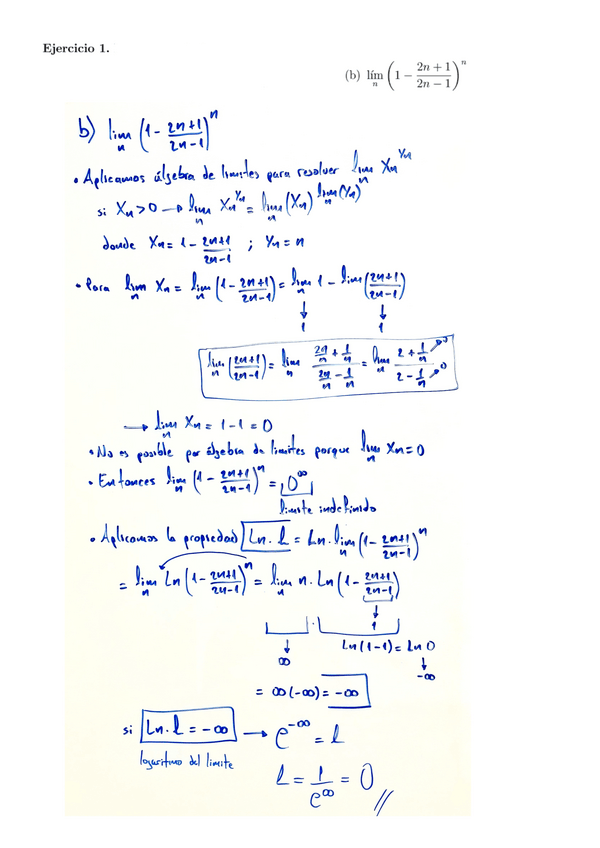 Ejercicio 1.
(b) lím_n (1 − (2n + 1)/(2n − 1))^n
b) lim_n (1 - (2n+1)/(2n-1))^n
• Aplicamos álgebra de limites para resolver lim_n Xn^Yn
si Xn > 0 → lim_n Xn^Yn = lim_n (Xn)^lim_n (Yn)
donde Xn = 1 - (2n+1)/(2n-1) ; Yn = n
• Para lim_n Xn = lim_n (1 - (2n+1)/(2n-1)) = lim_n 1 - lim_n ((2n+1)/(2n-1))
↓ ↓
1 1
lim_n ((2n+1)/(2n-1)) = lim_n (2n/n + 1/n)/(2n/n - 1/n) = lim_n (2 + 1/n ↗0)/(2 - 1/n ↗0)
→ lim_n Xn = 1 - 1 = 0
• No es posible por álgebra de limites porque lim_n Xn = 0
• Entonces lim_n (1 - (2n+1)/(2n-1))^n = 0^∞
limite indefinido
• Aplicamos la propiedad Ln. l = Ln. lim_n (1 - (2n+1)/(2n-1))^n
= lim_n Ln (1 - (2n+1)/(2n-1))^n = lim_n n. Ln (1 - (2n+1)/(2n-1))
↓
1
.
↓ Ln (1-1) = Ln 0
∞ ↓
-∞
= ∞ (-∞) = -∞
si Ln. l = -∞ → e^-∞ = l
logaritmo del limite
l = 1/e^∞ = 0 //